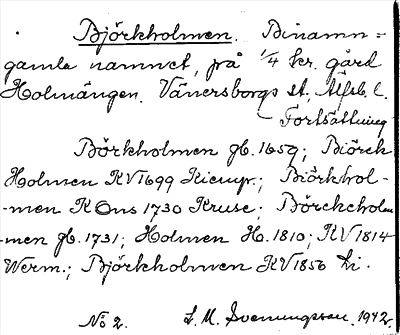 Björkholmen. Binamn =
gamla namnet, på 1/4 kr. gård
Holmängen. Vänersborgs st, Älfsb. l.
Fortsättning
Börkholmen gb. 1659; Biörck
Holmen RV 1699 Kiemp.; Biörkhol-
-men K Ons 1730 Kruse; Börckholm
-men gb. 1731; Holmen H. 1810; RV 1814
Werm.; Björkholmen RV 1856 Li.
No 2. L. M. Svenungsson. 1942.